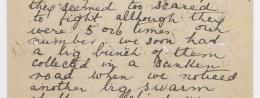 they seemed too scared
to fight although they
were 5 or 6 times our
number. We soon had
a big bunch of them
collected in a sunken
road when we noticed
another big swarm